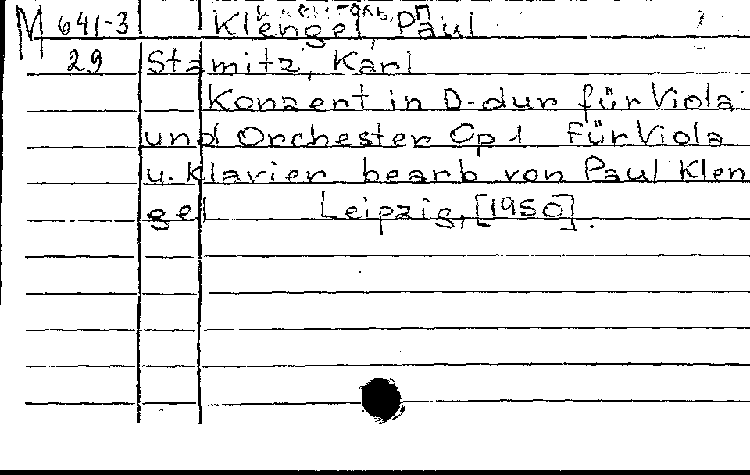 M 641-3 Klengel, Paul
29 Stamitz, Karl
Konzert in D-dur für Viola
und Orchester Op 1 Für Viola
u. Klavier bearb von Paul Klen
gel Leipzig, [1950].